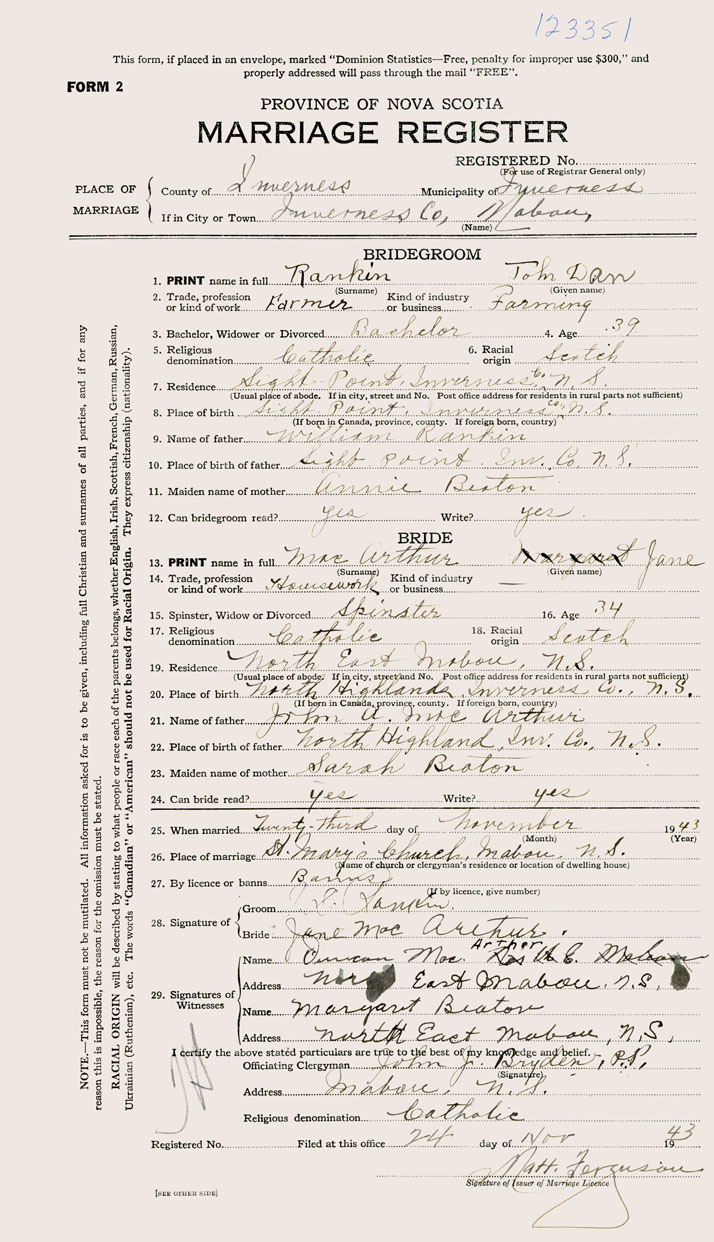 123351
This form, if placed in an envelope, marked "Dominion Statistics—Free, penalty for improper use $300," and
properly addressed will pass through the mail "FREE".
FORM 2
PROVINCE OF NOVA SCOTIA
MARRIAGE REGISTER
REGISTERED No.
(For use of Registrar General only)
PLACE OF MARRIAGE
County of Inverness Municipality of Inverness
If in City or Town Inverness Co, Mabou,
(Name)
BRIDEGROOM
1. PRINT name in full Rankin John Dan
(Surname) (Given name)
2. Trade, profession or kind of work Farmer Kind of industry or business Farming
3. Bachelor, Widower or Divorced Bachelor 4. Age 39
5. Religious denomination Catholic 6. Racial origin Scotch
7. Residence Sight Point, Inverness Co. N.S.
(Usual place of abode. If in city, street and No. Post office address for residents in rural parts not sufficient)
8. Place of birth Sight Point, Inverness Co. N.S.
(If born in Canada, province, county. If foreign born, country)
9. Name of father William Rankin
10. Place of birth of father Sight point Inv. Co. N.S.
11. Maiden name of mother Annie Beaton
12. Can bridegroom read? yes Write? yes
BRIDE
13. PRINT name in full Mac Arthur Margaret Jane
(Surname) (Given name)
14. Trade, profession or kind of work Housework Kind of industry or business —
15. Spinster, Widow or Divorced Spinster 16. Age 34
17. Religious denomination Catholic 18. Racial origin Scotch
19. Residence North East Mabou, N.S.
(Usual place of abode. If in city, street and No. Post office address for residents in rural parts not sufficient)
20. Place of birth North Highlands, Inverness Co., N.S.
(If born in Canada, province, county. If foreign born, country)
21. Name of father John A. Mac Arthur
22. Place of birth of father North Highland, Inv. Co., N.S.
23. Maiden name of mother Sarah Beaton
24. Can bride read? yes Write? yes
25. When married Twenty-third day of November 1943
(Month) (Year)
26. Place of marriage St. Mary's Church, Mabou, N.S.
(Name of church or clergyman's residence or location of dwelling house)
27. By licence or banns Banns
(If by licence, give number)
28. Signature of
Groom Rankin
Bride Jane Mac Arthur.
29. Signatures of Witnesses
Name Duncan Mac Arther Mabou
Address North East Mabou, N.S,
Name Margaret Beaton
Address North East Mabou, N,S,
I certify the above stated particulars are true to the best of my knowledge and belief.
Officiating Clergyman John J. Bryden, P.P.
(Signature)
Address Mabou, N.S.
Religious denomination Catholic
Registered No. Filed at this office 24 day of Nov 1943
Matt. Ferguson
Signature of Issuer of Marriage Licence
[SEE OTHER SIDE]
NOTE.—This form must not be mutilated. All information asked for is to be given, including full Christian and surnames of all parties, and if for any
reason this is impossible, the reason for the omission must be stated.
RACIAL ORIGIN will be described by stating to what people or race each of the parents belongs, whether English, Irish, Scottish, French, German, Russian,
Ukrainian (Ruthenian), etc. The words "Canadian" or "American" should not be used for Racial Origin. They express citizenship (nationality).